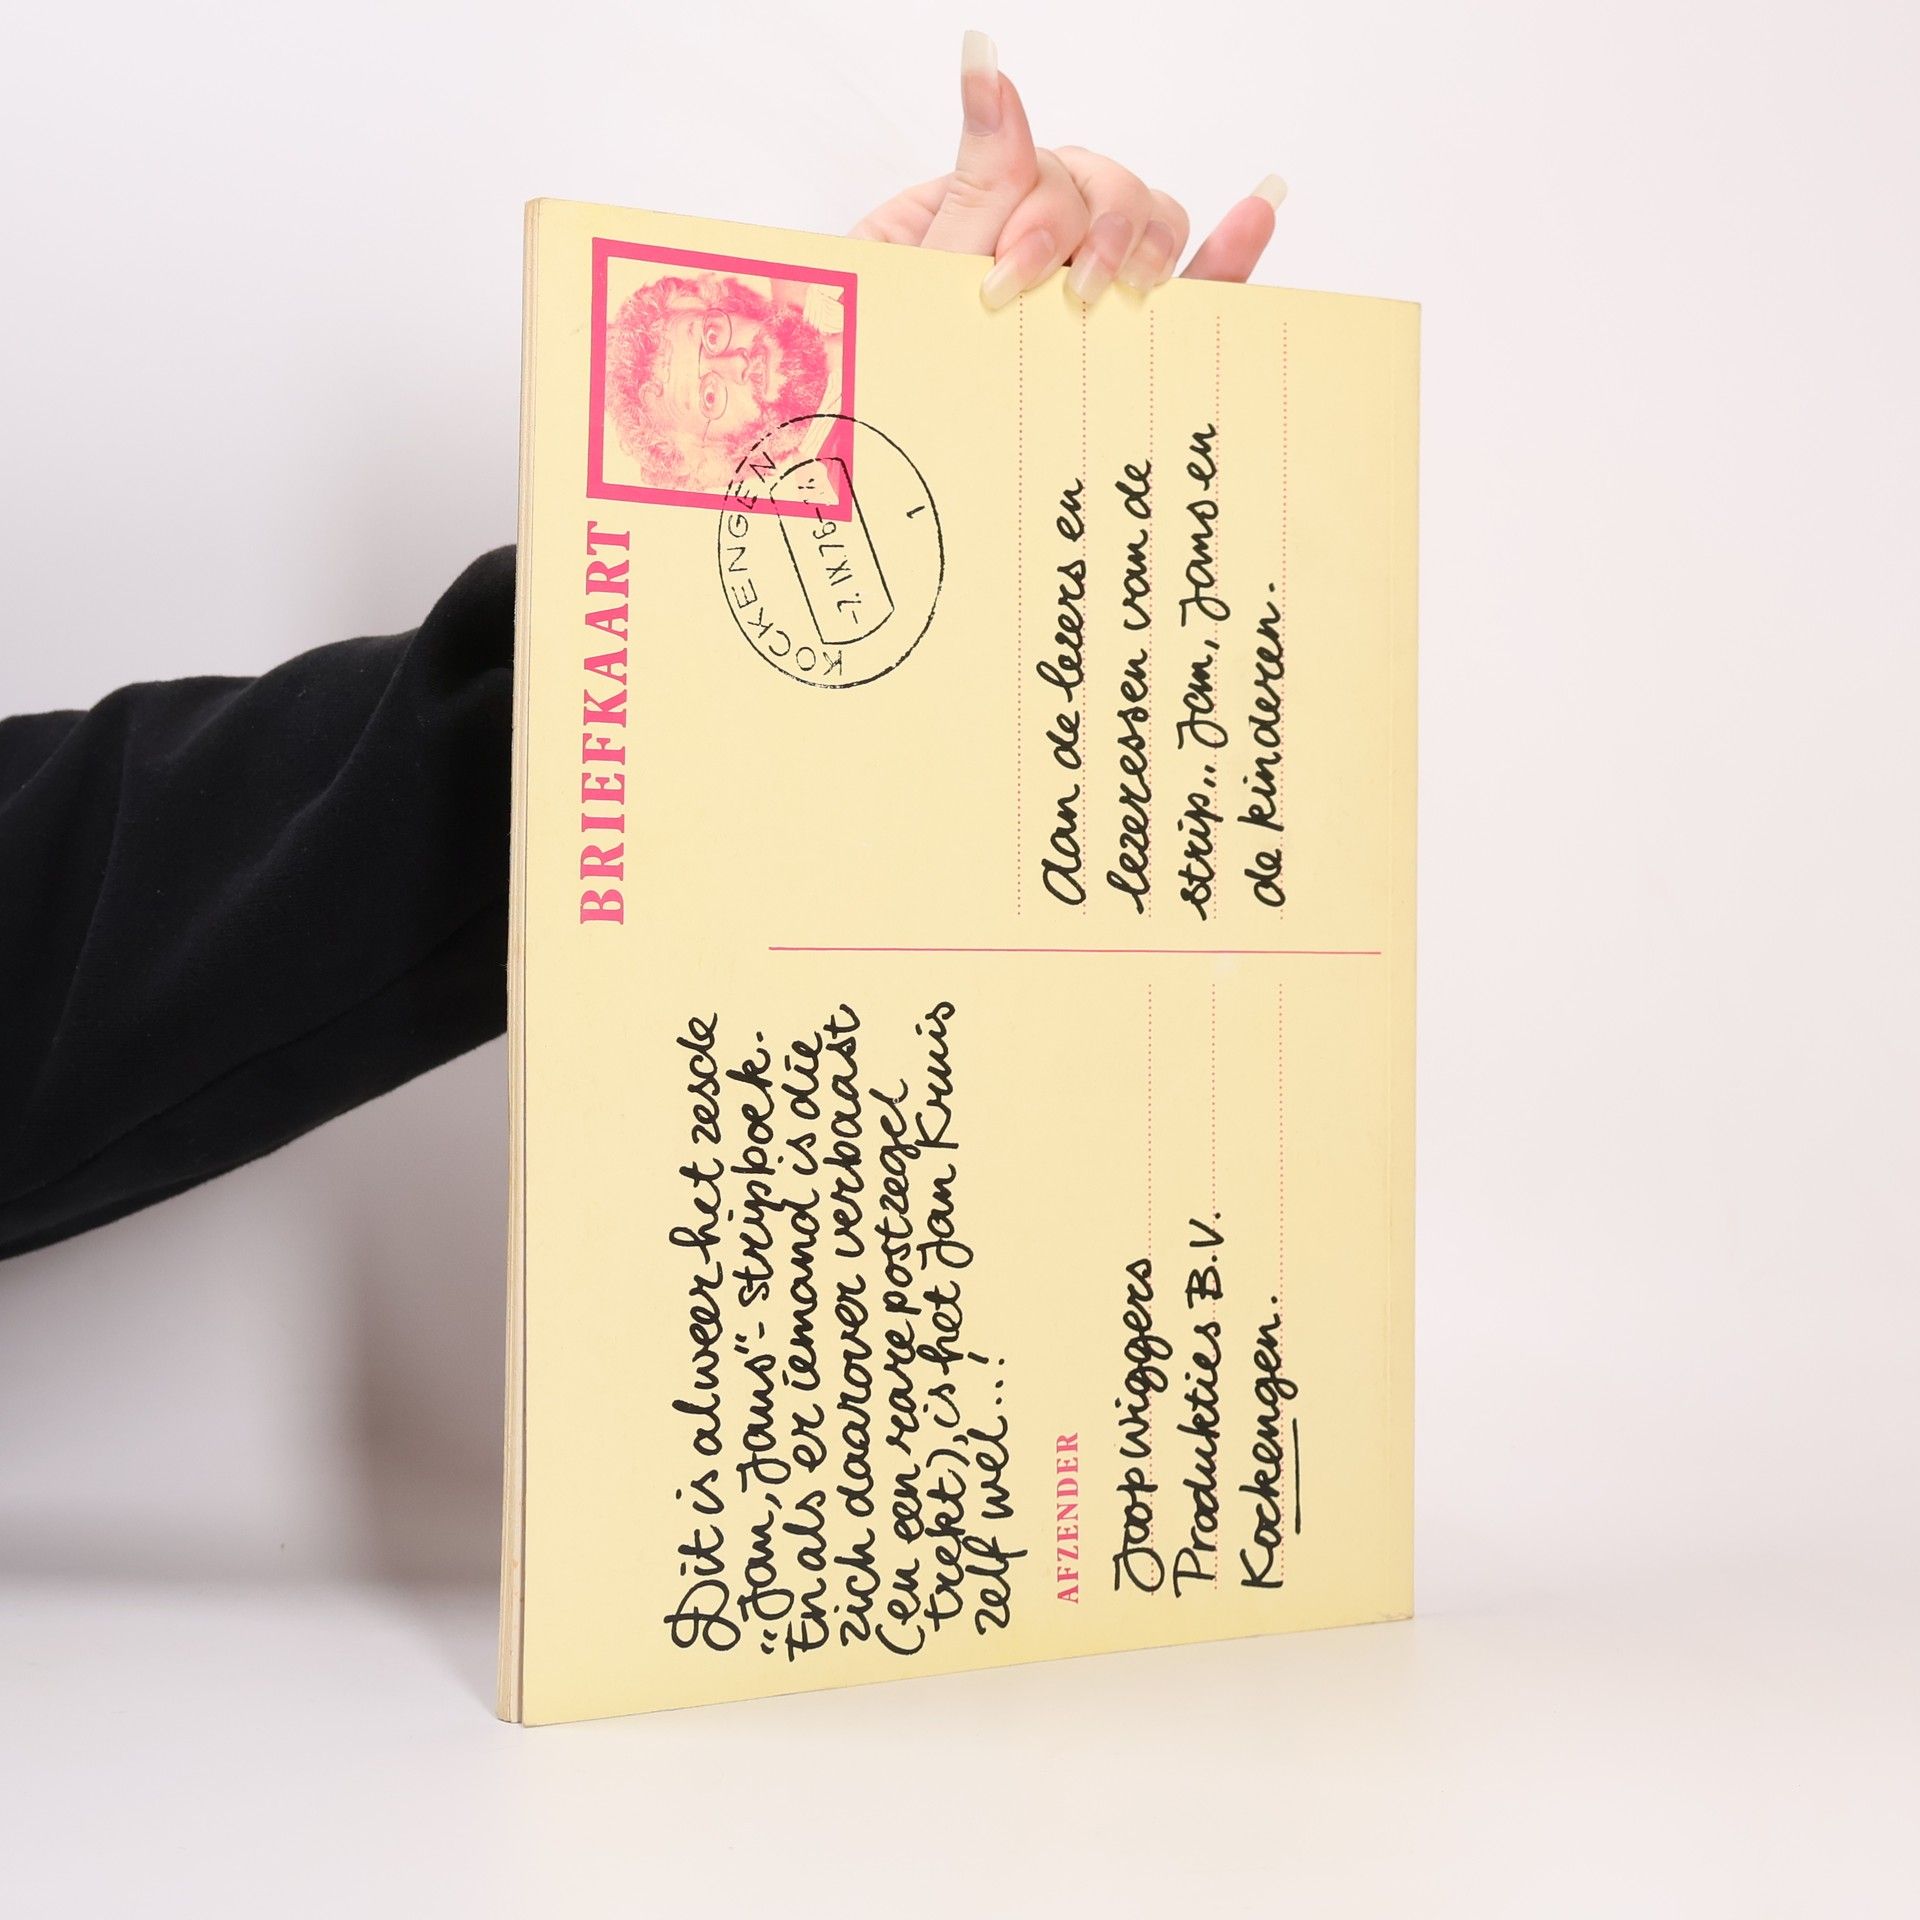 BRIEFKAART
KOCKENGEN
-7.IX.76-
1
Dit is alweer het zesde
"Jan, Jans"- stripboek.
En als er iemand is die
zich daarover verbaast
(en een rare postzegel
trekt), is het Jan Kruis
zelf wel...!
AFZENDER
Joop Wiggers
Produkties B.V.
Kockengen.
Aan de lezers en
lezeressen van de
strip.. Jan, Jans en
de kinderen.